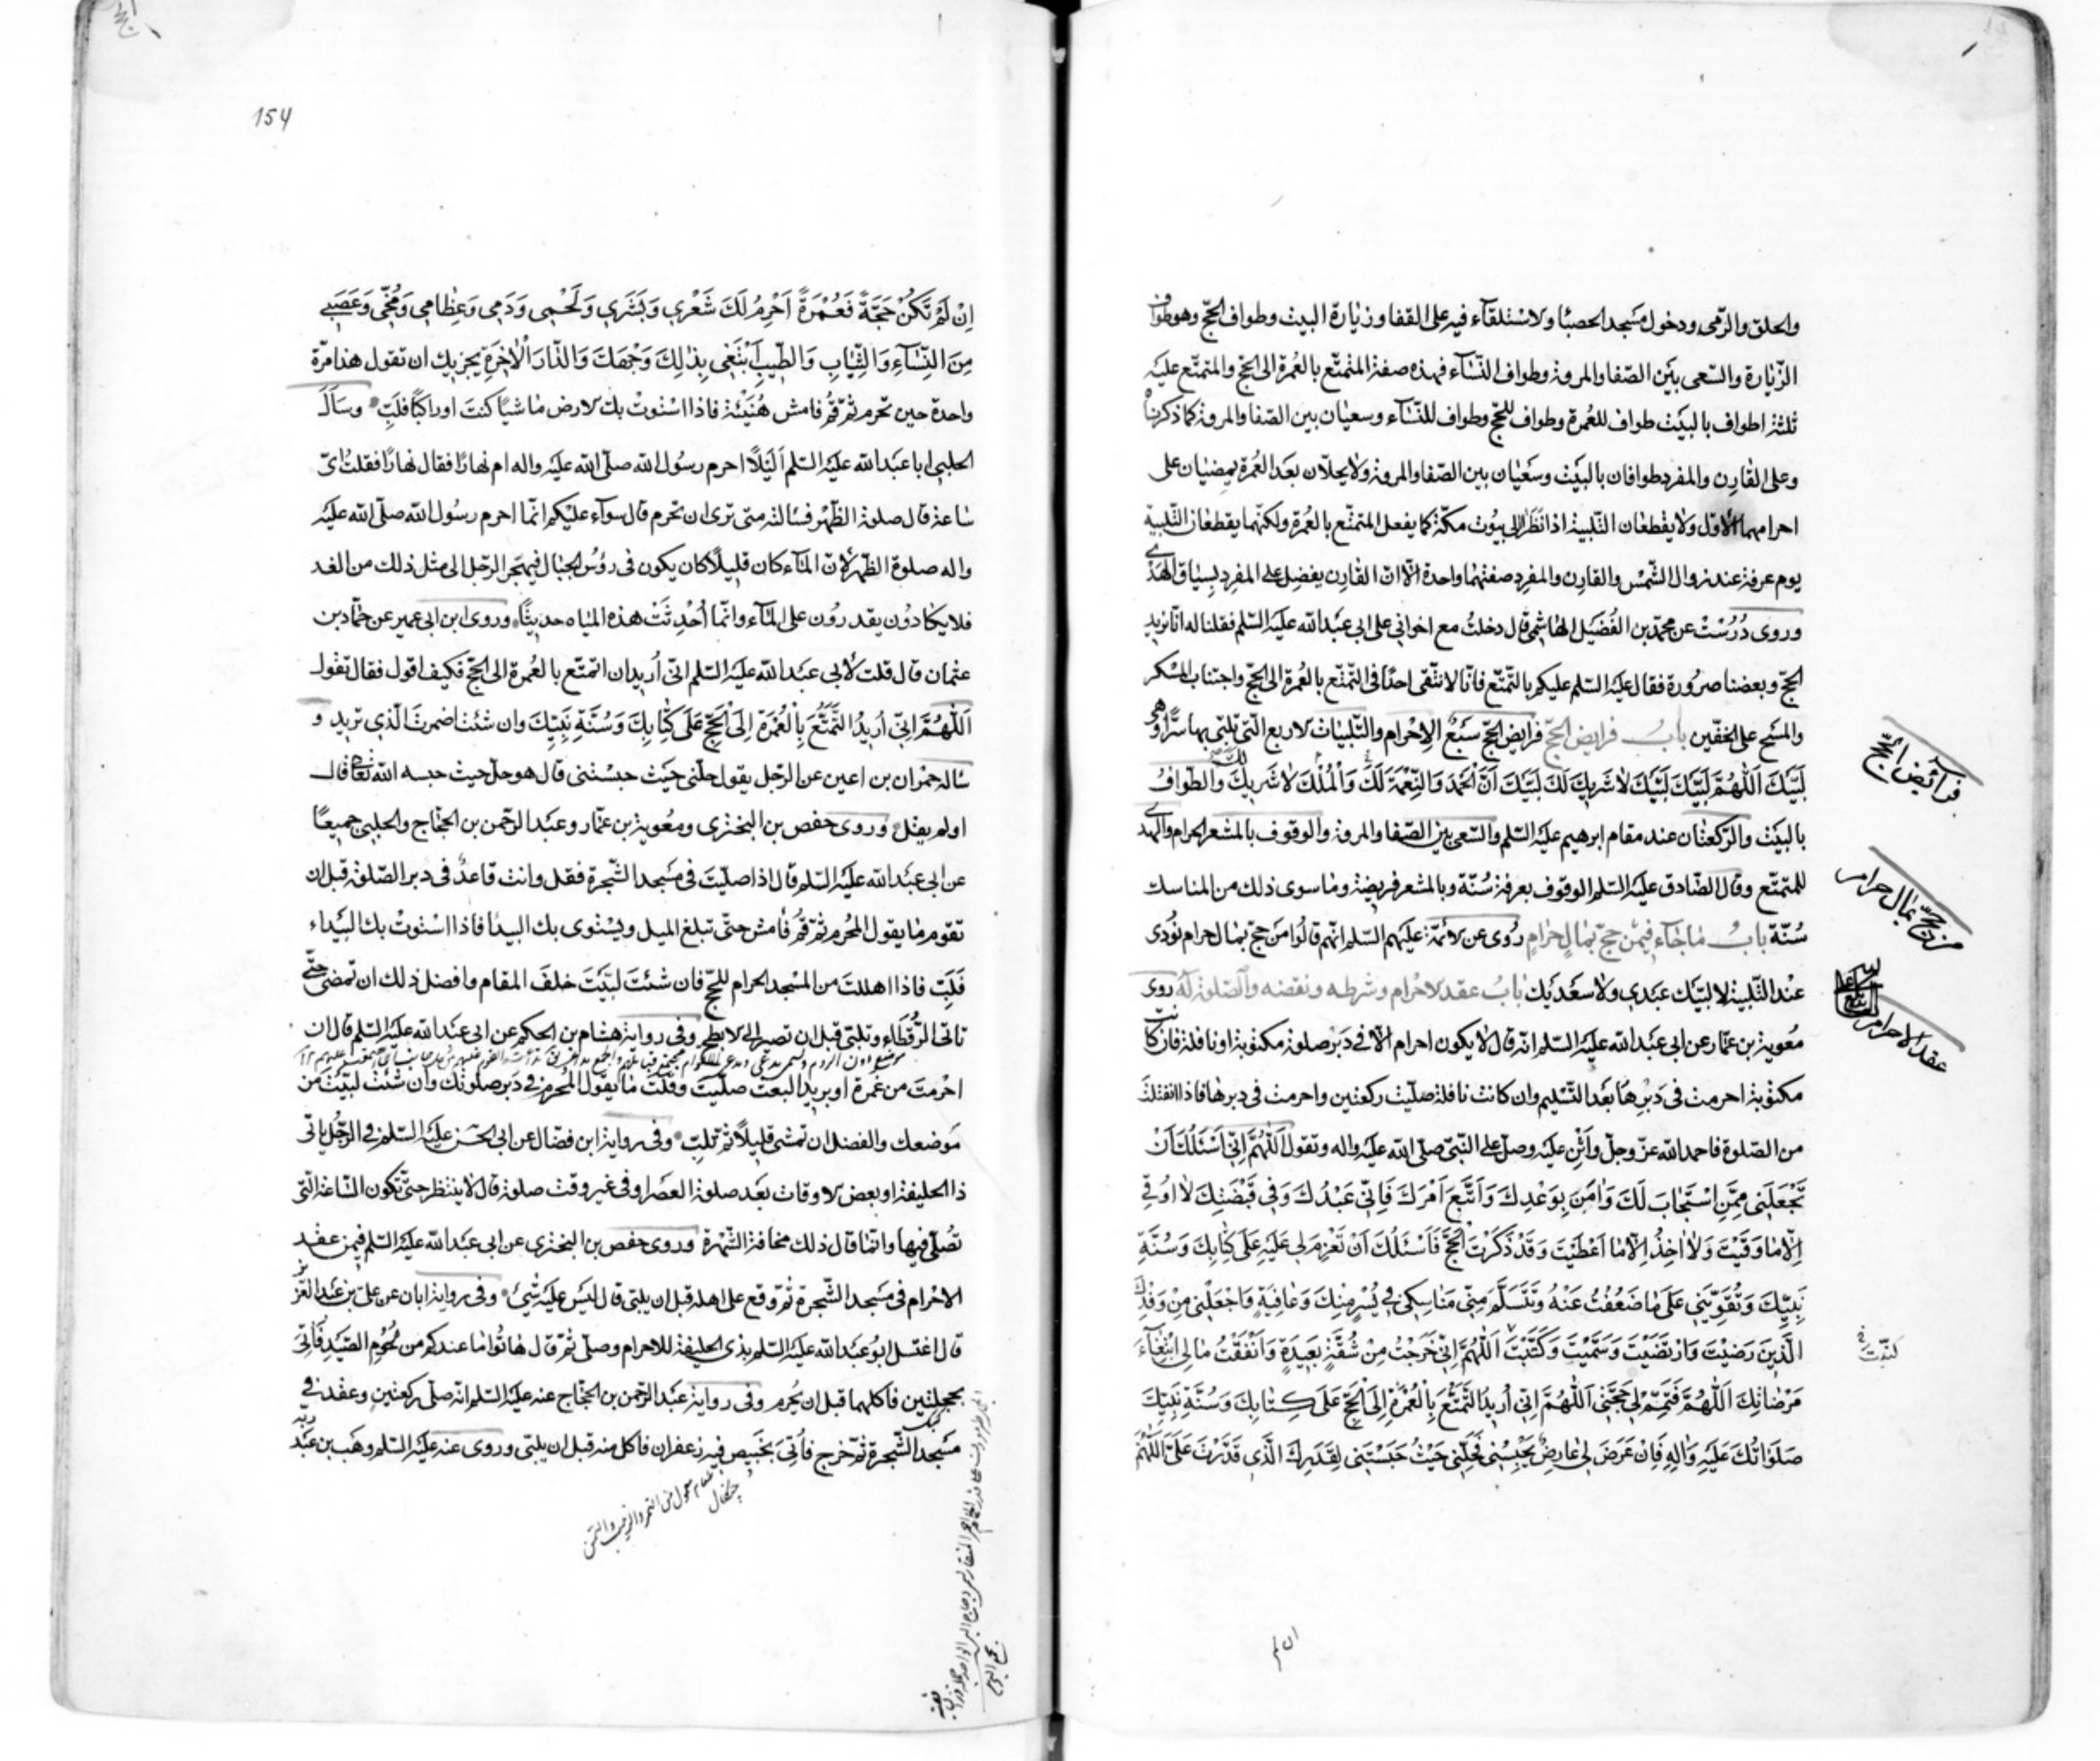 والحلق والرّمى ودخول مسجد الحصبا والاستلقآء فيه على القفا وزيارة البيت وطواف الحجّ وهو طواف
الزّيارة والسّعى بين الصّفا والمروة وطواف النّسآء فهذه صفة المتمتّع بالعُمرة الى الحجّ والمتمتّع عليه
ثلثة اطواف بالبيت طواف للعُمرة وطواف للحجّ وطواف للنّسآء وسعيان بين الصّفا والمروة كما ذكرناه
وعلى القارن والمفرد طوافان بالبيت وسعيان بين الصّفا والمروة ولا يحلّان بعد العُمرة يمضيان على
احرامهما الاوّل ولا يقطعان التّلبية اذا نظرا الى بيُوت مكّة كما يفعل المتمتّع بالعُمرة ولكنّهما يقطعان التّلبية
يوم عرفة عند زوال الشّمس والقارن والمفرد صفتهما واحدة الّا انّ القارن يفضل على المفرد بسياق الهَدْى
وروى دُرُسْتْ عن محمّد بن الفُضَيل الهاشمى قال دخلتُ مع اخوانى على ابى عبد الله عليه السّلم فقلنا له انّا نريد
الحجّ وبعضنا صرورة فقال عليه السّلم عليكم بالتّمتّع فانّا لا نتّقى احدًا فى التّمتّع بالعُمرة الى الحجّ واجتناب المسكر
والمسَح على الخفّين بابُ فرايض الحجّ فرايض الحجّ سَبْعٌ الاِحْرام والتّلبيات الاربع الّتى يلبّى بها سرًّا وهى
لَبَّيْكَ اَللّٰهُمَّ لَبَّيْكَ لَبَّيْكَ لا شَريكَ لَكَ لَبَّيْكَ اَنَّ الْحَمْدَ وَالنِّعْمَةَ لَكَ وَالْمُلْكَ لا شَريكَ لك والطّوافُ
بالبيت والرّكعتان عند مقام ابرهيم عليه السّلم والسّعى بين الصّفا والمروة والوقوف بالمشعر الحرام والهدى
للمتمتّع وقال الصّادق عليه السّلم الوقوف بعرفة سُنّة وبالمشعر فريضة وما سوى ذلك من المناسك
سُنّة بابُ ما جآء فيمَن حجّ بمالٍ حرامٍ رُوى عن الائمّة عليهم السّلم انّهم قالُوا من حجّ بمال حرام نُودى
عند التّلبية لا لبّيك عبدى ولا سعديك بابُ عقد الاحرام وشرطه ونقضه والصّلوة له روى
مُعوية بن عمّار عن ابى عبد الله عليه السّلم انّه قال لا يكون احرام الّا فى دَبر صلوة مكتوبة او نافلة فان كانت
مكتوبة احرمت فى دَبرها بعد التّسليم وان كانت نافلة صلّيت ركعتين واحرمت فى دبرها فاذا انفتلتَ
من الصّلوة فاحمد الله عزّ وجلّ وأثْنِ عليه وصلّ على النّبىّ صلّى الله عليه واله وتقول اَللّٰهُمَّ اِنّى اَسْئَلُكَ اَنْ
تَجْعَلَنى مِمَّنِ اسْتَجابَ لَكَ وَامَنَ بِوَعْدِكَ وَاتَّبَعَ اَمْرَكَ فَاِنّى عَبْدُكَ وَفى قَبْضَتِكَ لا اُوقى
اِلّا ما وَقَيْتَ وَلا اخِذُ اِلّا ما اَعْطَيْتَ وَقَدْ ذَكَرْتَ الْحَجَّ فَاَسْئَلُكَ اَنْ تَعْزِمَ لى عَلَيْهِ عَلى كِتابِكَ وَسُنَّةِ
نَبِيِّكَ وَتُقَوِّيَنى عَلى ما ضَعُفْتُ عَنْهُ وَتَتَسَلَّمَ مِنّى مَناسِكى فى يُسْرٍ مِنْكَ وَعافِيَةٍ وَاجْعَلْنى مِنْ وَفْدِكَ
الَّذينَ رَضيْتَ وَارْتَضَيْتَ وَسَمَّيْتَ وَكَتَبْتَ اَللّٰهُمَّ اِنّى خَرَجْتُ مِنْ شُقَّةٍ بَعيدَةٍ وَاَنْفَقْتُ مالى ابْتِغآءَ
مَرْضاتِكَ اَللّٰهُمَّ فَتَمِّمْ لى حَجَّتى اَللّٰهُمَّ اِنّى اُريدُ التَّمَتُّعَ بِالْعُمْرَةِ اِلَى الْحَجِّ عَلى كِتابِكَ وَسُنَّةِ نَبِيِّكَ
صَلَواتُكَ عَلَيْهِ وَالِهِ فَاِنْ عَرَضَ لى عارِضٌ يَحْبِسُنى فَحُلَّنى حَيْثُ حَبَسْتَنى لِقَدَرِكَ الَّذى قَدَّرْتَ عَلَىَّ اَللّٰهُمَّ
فرآئض الحجّ
من حجّ بمال حرام
عقد الاحرام
ان لم
154
اِنْ لَمْ تَكُنْ حَجَّةً فَعُمْرَةً اَحْرَمَ لَكَ شَعْرى وَبَشَرى وَلَحْمى وَدَمى وَعِظامى وَمُخّى وَعَصَبى
مِنَ النِّسآءِ وَالثِّيابِ وَالطّيبِ اَبْتَغى بِذٰلِكَ وَجْهَكَ وَالدّارَ الْاخِرَةَ يجزيك ان تقول هذا مرّة
واحدة حين تحرم ثمّ قُم فامش هُنَيْئة فاذا استوتْ بك الارض ماشيًا كنتَ او راكبًا فلَبِّ وسَاَلَ
الحلبى ابا عبد الله عليه السّلم اَلَيْلًا احرم رسُول الله صلّى الله عليه واله ام نهارًا فقال نهارًا فقلتُ اىّ
ساعة قال صلوة الظّهر فسالته متى ترى ان نحرم قال سوآء عليكم انّما احرم رسُول الله صلّى الله عليه
واله صلوة الظهر لانّ المآء كان قليلًا كان يكون فى رؤُس الجبال فيهجر الرّجل الى مثل ذلك من الغد
فلا يكادُون يقدرُون على المآء وانّما اُحْدِثَتْ هذه المياه حديثًا وروى ابن ابى عمير عن حمّاد بن
عثمان قال قلت لابى عبد الله عليه السّلم انّى اُريد ان اتمتّع بالعُمرة الى الحجّ فكيف اقول فقال تقول
اَللّٰهُمَّ اِنّى اُريدُ التَّمَتُّعَ بِالْعُمْرَةِ اِلَى الْحَجِّ عَلى كِتابِكَ وَسُنَّةِ نَبِيِّكَ وان شئت اضمرتَ الّذى تريد و
ساله حمزان بن اعين عن الرّجل يقول حلّنى حيث حبستنى قال هو حلّ حيث حبسه الله تعالى قال
او لم يقل وروى حفص بن البخترى ومعوية بن عمّار وعبد الرّحمن بن الحجّاج والحلبى جميعًا
عن ابى عبد الله عليه السّلم قال اذا صلّيتَ فى مسجد الشّجرة فقل وانت قاعدٌ فى دبر الصّلوة قبل ان
تقوم ما يقول المُحرم ثمّ قُم فامش حتّى تبلغ الميل ويستوى بك البيدا فاذا استوتْ بك البيداء
فَلَبِّ فاذا اهللتَ من المسجد الحرام للحجّ فان شئتَ لبّيتَ خلفَ المقام وافضل ذلك ان تمضى حتّى
تاتى الرّقطاء وتلبّى قبل ان تصير الى الابطح وفى رواية هشام بن الحكم عن ابى عبد الله عليه السّلم قال ان
احْرمتَ من غَمرة او بريد البعث صلّيتَ وقلتَ ما يقول المُحرم فى دَبر صلوتك وان شئتَ لبّيتَ من
مَوضعك والفضل ان تمشى قليلًا ثمّ تلبّى وفى رواية ابن فضّال عن ابى الحسن عليه السّلم فى الرّجُل ياتى
ذا الحليفة او بعض الاوقات بعد صلوة العصر او فى غير وقت صلوة قال لا ينتظر حتّى تكون السّاعة الّتى
تُصلّى فيها وانّما قال ذلك مخافة الشّهرة وروى حفص بن البخترى عن ابى عبد الله عليه السّلم فيمن عقد
الاحْرام فى مسجد الشّجرة ثمّ وقع على اهله قبل ان يلبّى قال ليس عليه شىءٌ وفى رواية ابان عن علىّ بن عبد العزيز
قال اغتسل ابُو عبد الله عليه السّلم بذى الحليفة للاحرام وصلّى ثمّ قال هاتُوا ما عندكم من لُحُوم الصّيد فَاُتِىَ
بحجلتين فاكلهما قبل ان يُحرم وفى رواية عبد الرّحمن بن الحجّاج عنه عليه السّلم انّه صلّى ركعتين وعقد فى
مسجد الشّجرة ثمّ خرج فاُتِىَ بخبيص فيه زعفران فاكل منه قبل ان يلبّى وروى عنه عليه السّلم وهَب بن عبد ربّه